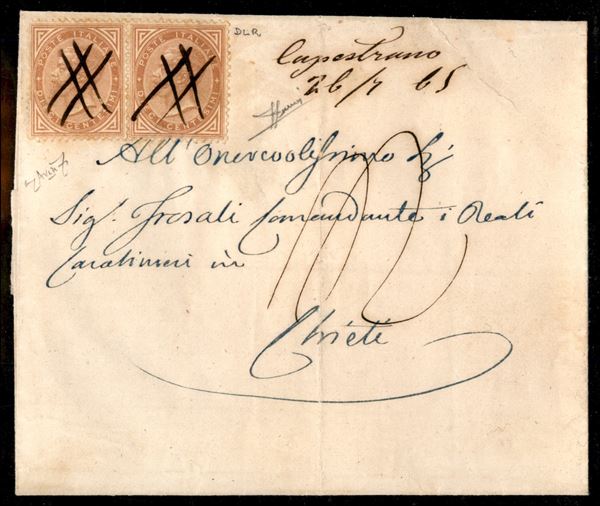 POSTE ITALIANE POSTE ITALIANE
DIECI CENTESIMI DIECI CENTESIMI
DLR
Capestrano
26/7 65
All' Onorevolissimo Sig.
Sig.r Frosali Comandante i Reali
Carabinieri in
Chieti